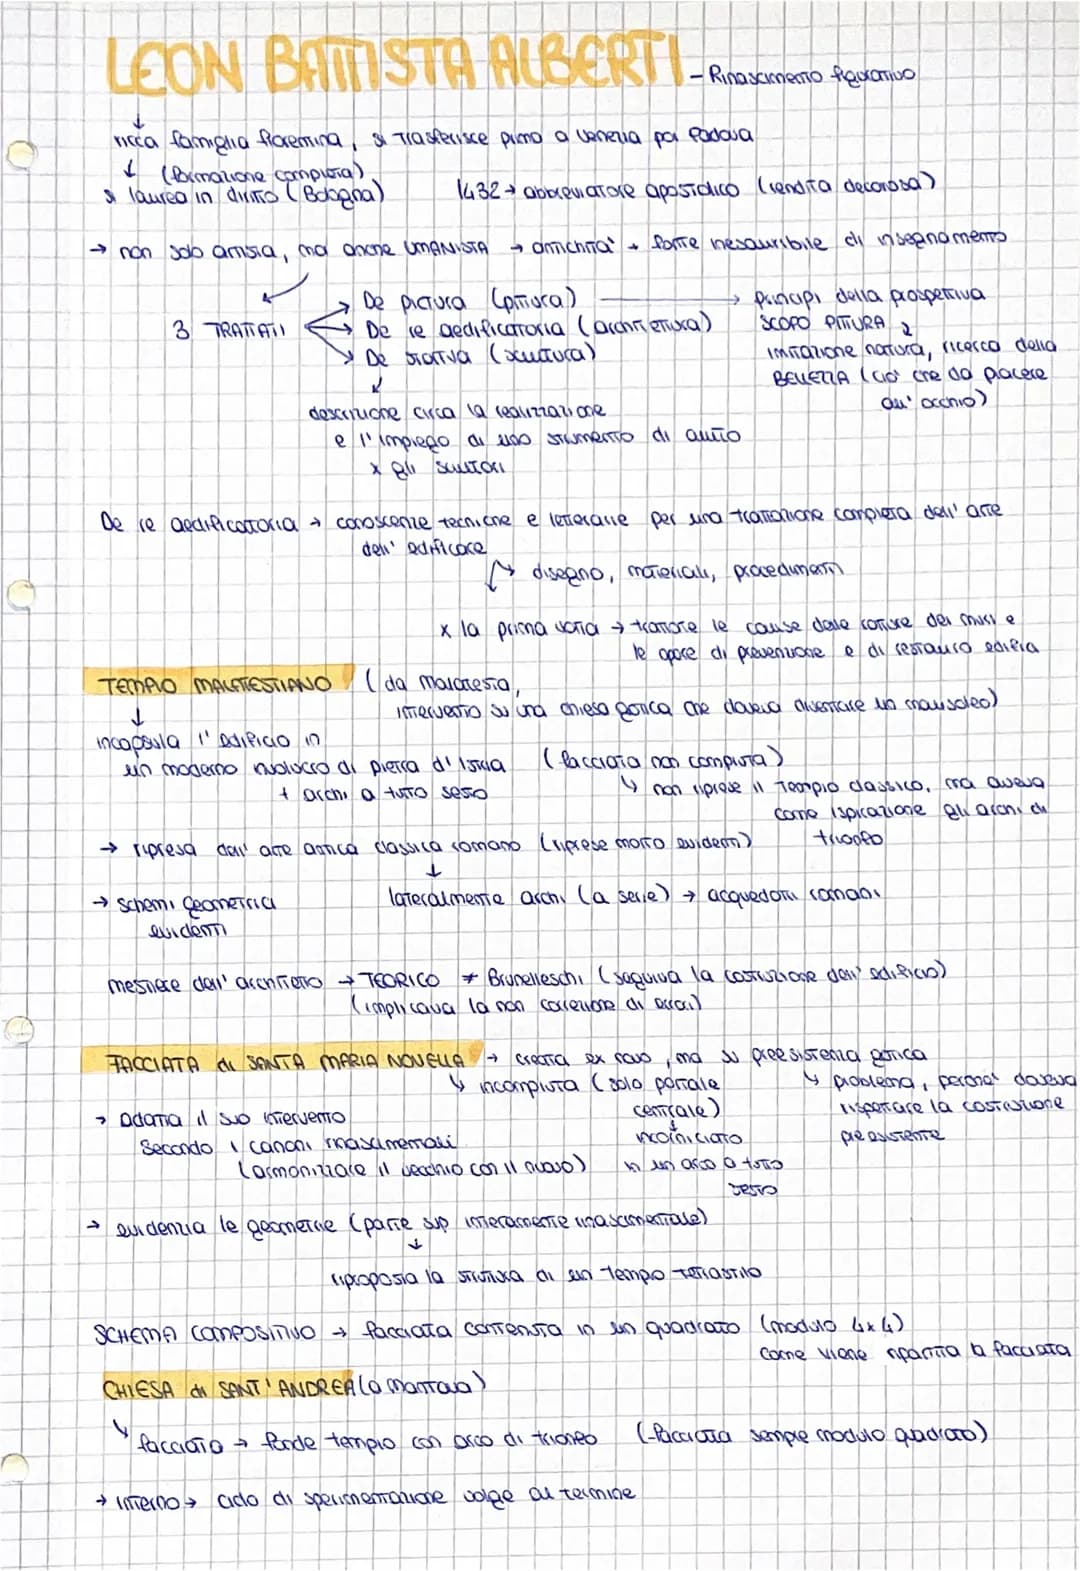 LEON BATTISTA ALBERTI - Rinascimento figurativo
ricca famiglia fiorentina, si trasferisce prima a Venezia poi Padova
↓ (formazione compiuta)
si laurea in diritto (Bologna) 1432 → abbreviatore apostolico (rendita decorosa)
→ non solo artista, ma anche UMANISTA → antichità → fonte inesauribile di insegnamento
3 TRATTATI
→ De pictura (pittura) → principi della prospettiva
→ De re aedificatoria (architettura) SCOPO PITTURA
→ De statua (scultura) imitazione natura, ricerca della
BELLEZZA (ciò che dà piacere
all'occhio)
descrizione circa la realizzazione
e l'impiego di uno strumento di aiuto
x gli scultori
De re aedificatoria → conoscenze tecniche e letterarie per una trattazione completa dell'arte
dell'edificare
→ disegno, materiali, procedimenti
x la prima volta → trattare le cause delle rotture dei muri e
le opere di prevenzione e di restauro edifici
TEMPIO MALATESTIANO (da Malatesta,
intervento su una chiesa gotica che doveva diventare un mausoleo)
incapsula l'edificio in
un moderno involucro di pietra d'Istria (facciata non compiuta)
+ archi a tutto sesto → non riprese il Tempio classico, ma aveva
come ispirazione gli archi di
trionfo
→ ripresa dall'arte antica classica romana (riprese molto evidenti)
→ schemi geometrici lateralmente archi (a serie) → acquedotti romani
evidenti
mestiere dell'architetto → TEORICO ≠ Brunelleschi (seguiva la costruzione dell'edificio)
(implicava la non correzione di errori)
FACCIATA di SANTA MARIA NOVELLA → creata ex novo, ma su preesistenza gotica
→ incompiuta (solo portale → problema, perché doveva
centrale) rispettare la costruzione
→ adatta il suo intervento incorniciato preesistente
secondo i canoni rinascimentali in un arco a tutto
(armonizzare il vecchio con il nuovo) sesto
→ evidenzia le geometrie (parte sup interamente rinascimentale)
↓
riproposta la struttura di un tempio tetrastilo
SCHEMA COMPOSITIVO → facciata contenuta in un quadrato (modulo 4x4)
come viene ripartita la facciata
CHIESA di SANT'ANDREA (a Mantova)
facciata → fonde tempio con arco di trionfo (facciata sempre modulo quadrato)
→ interno → ciclo di sperimentazione volge al termine